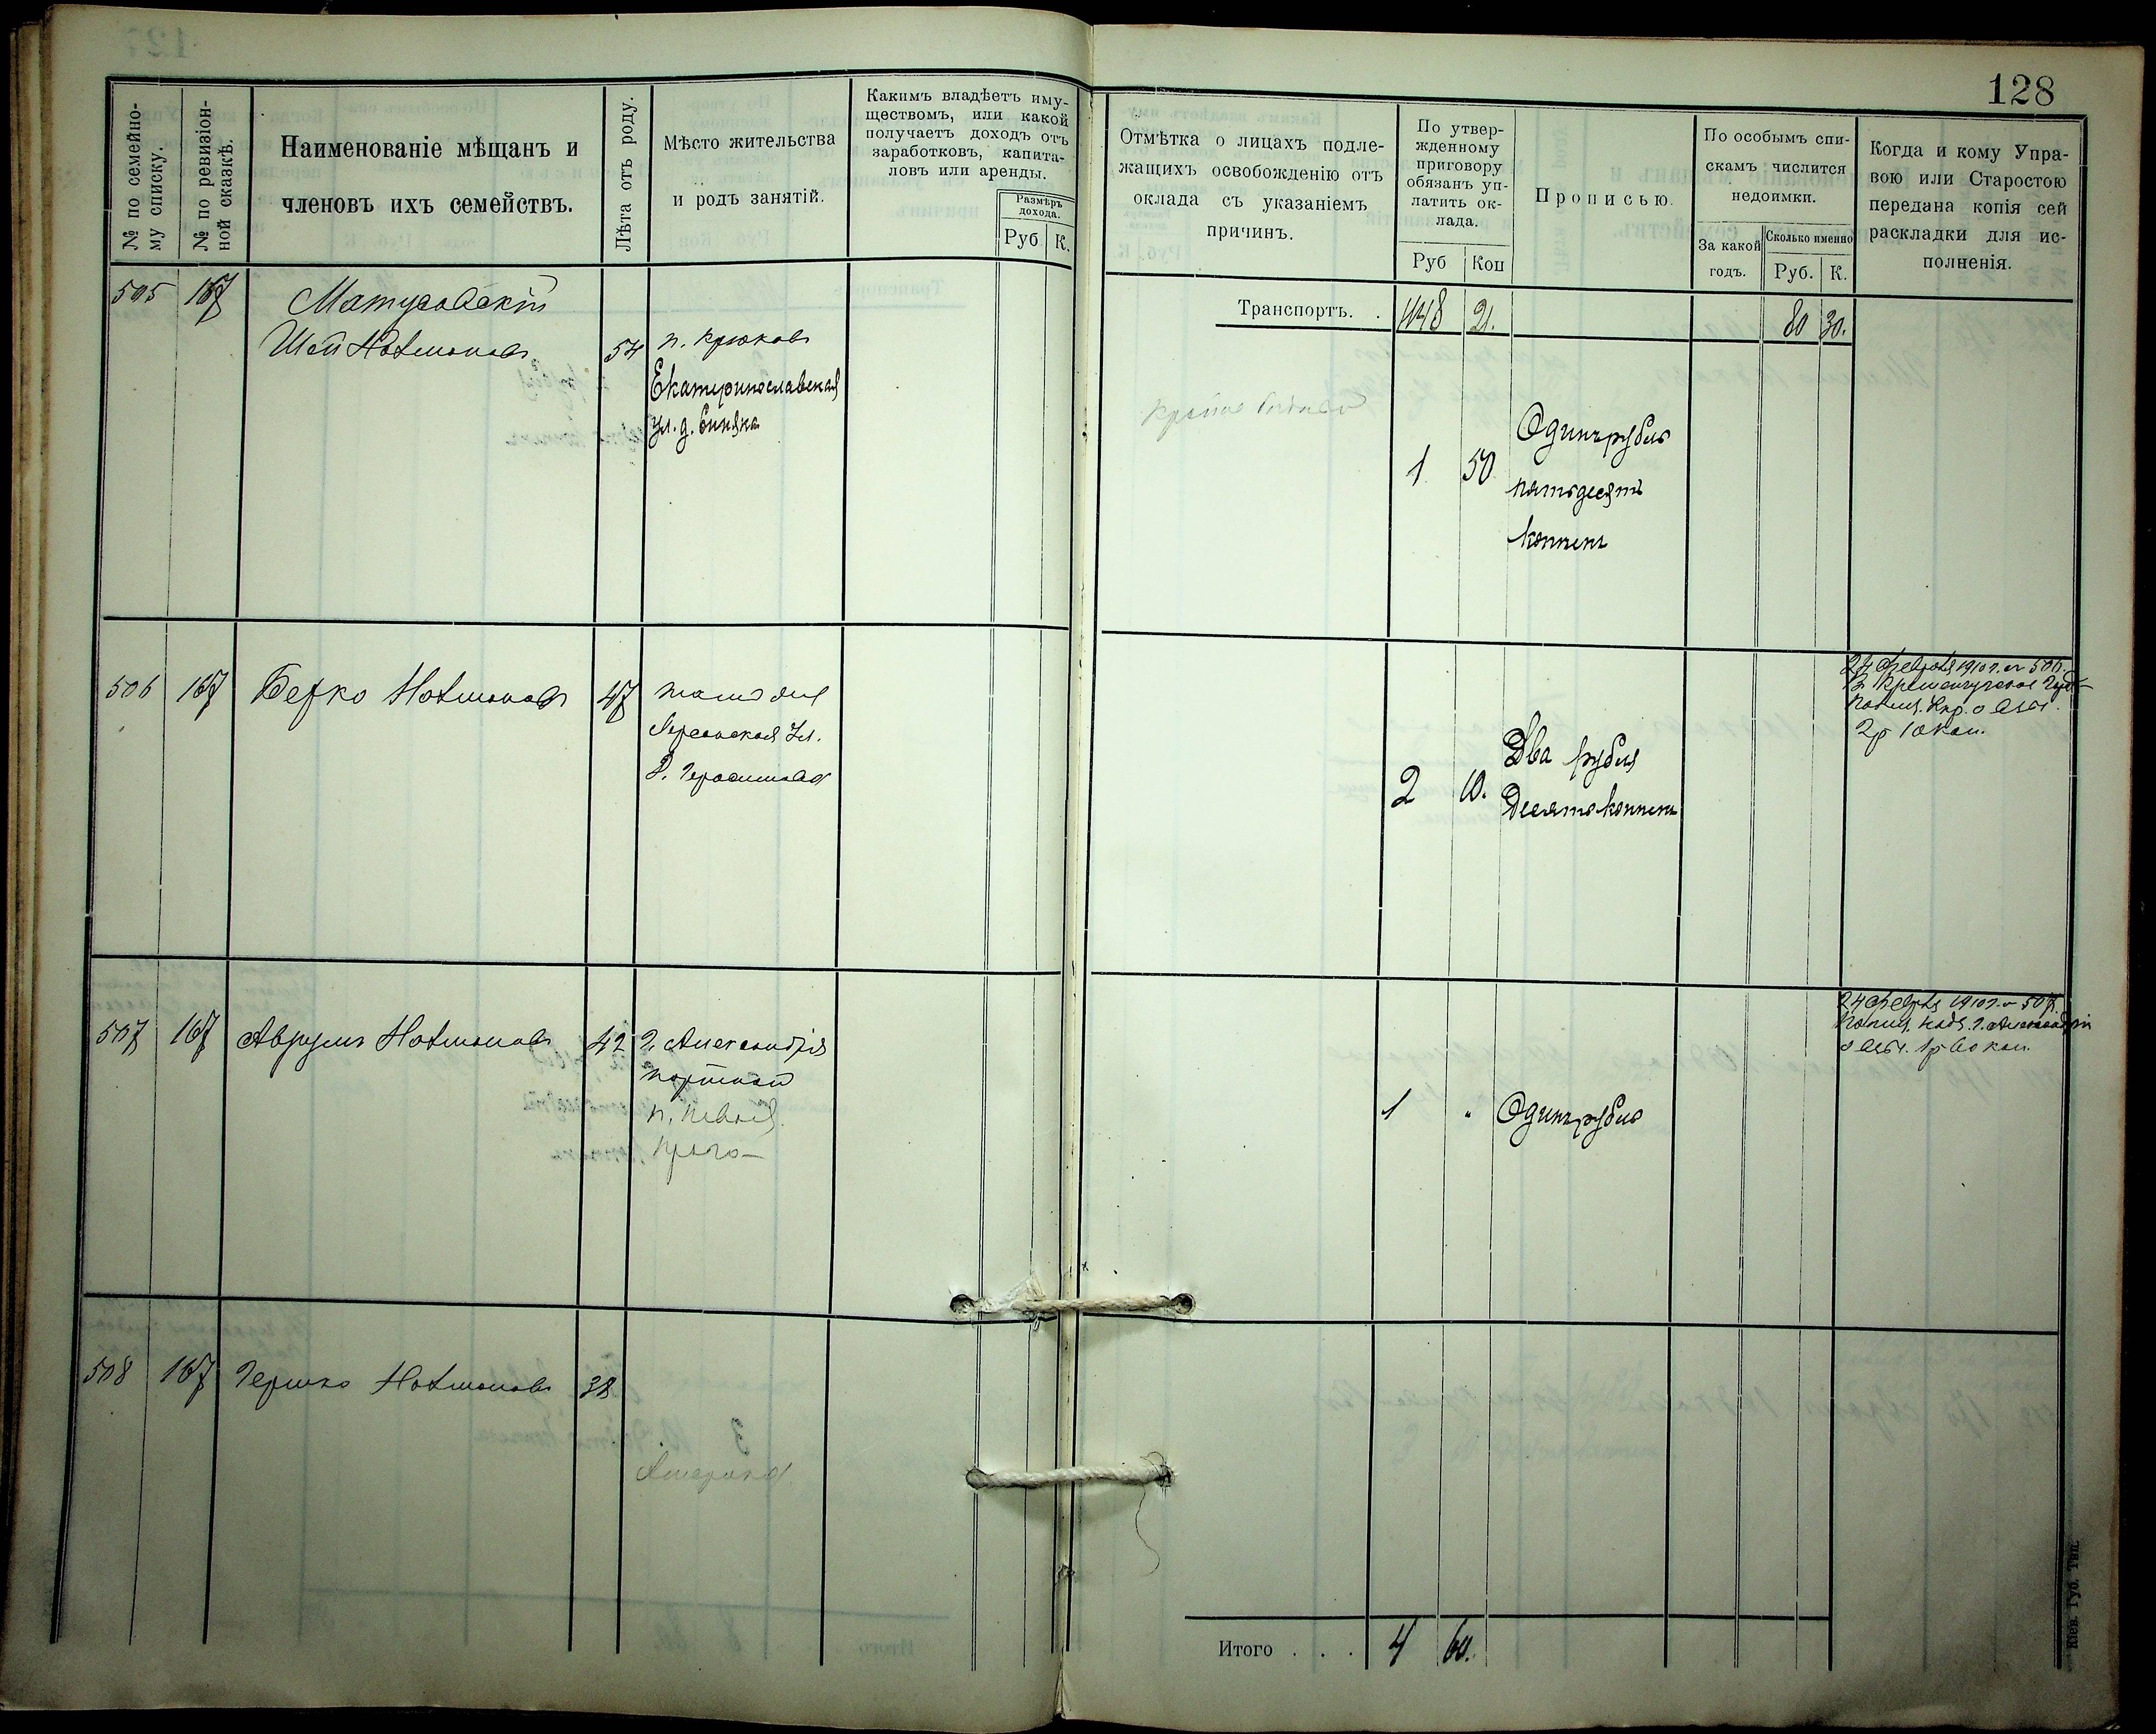 128
№ по семейно-
му списку.
№ по ревизіон-
ной сказкѣ.
Наименованіе мѣщанъ и
членовъ ихъ семействъ.
Лѣта отъ роду.
Мѣсто жительства
и родъ занятій.
Какимъ владѣетъ иму-
ществомъ, или какой
получаетъ доходъ отъ
заработковъ, капита-
ловъ или аренды.
Размѣръ
дохода.
Руб К.
Отмѣтка о лицахъ подле-
жащихъ освобожденію отъ
оклада съ указаніемъ
причинъ.
По утвер-
жденному
приговору
обязанъ уп-
латить ок-
лада.
Руб Коп
Прописью.
По особымъ спи-
скамъ числится
недоимки.
За какой
годъ.
Сколько именно
Руб. К.
Когда и кому Упра-
вою или Старостою
передана копія сей
раскладки для ис-
полненія.
Транспортъ. . 1148 21. 80 30.
505 167 Матусовскій
54 п. Крюковъ
Екатеринославская
ул. д.
1 50 Одинъ рубль
пятьдесятъ
копѣекъ
506 167 Берко 47
Херсонская ул.
д. Герасимова
2 10. Два рубля
Десять копѣекъ
2р 10 коп.
507 167 Аврумъ 42 г. Александрія
портной
1 " Одинъ рубль
1р 60 коп.
508 167 Гершко 38
Америка
Итого . . . 4 60.
Кіев. Губ. Тип.